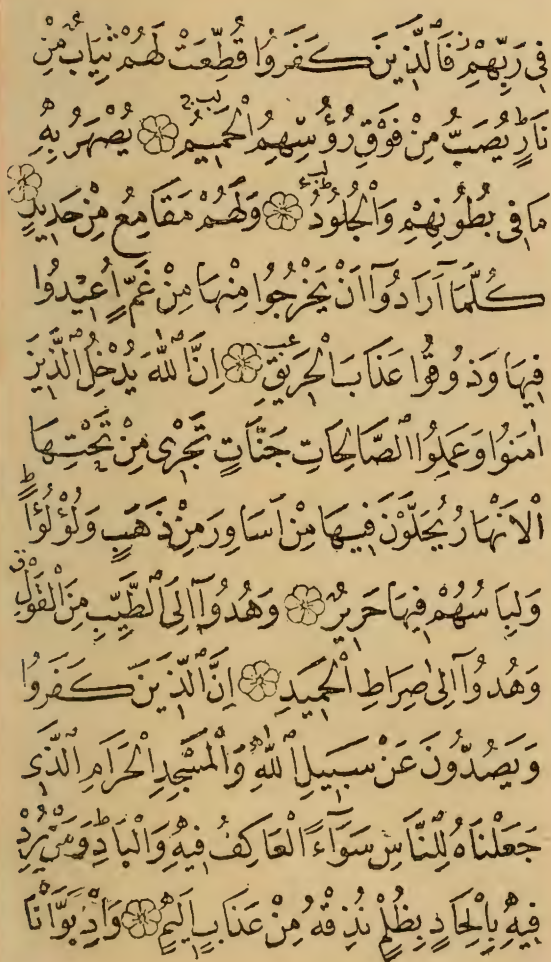 فِى رَبِّهِمْ فَالَّذِينَ كَفَرُوا قُطِّعَتْ لَهُمْ ثِيَابٌ مِنْ
نَارٍ يُصَبُّ مِنْ فَوْقِ رُؤُسِهِمُ الْحَمِيمُ ۝ يُصْهَرُ بِهِ
مَا فِى بُطُونِهِمْ وَالْجُلُودُ ۝ وَلَهُمْ مَقَامِعُ مِنْ حَدِيدٍ ۝
كُلَّمَآ اَرَادُوآ اَنْ يَخْرُجُوا مِنْهَا مِنْ غَمٍّ اُعِيْدُوا
فِيهَا وَذُوقُوا عَذَابَ الْحَرِيقِ ۝ اِنَّ اللّٰهَ يُدْخِلُ الَّذِينَ
اٰمَنُوا وَعَمِلُوا الصَّالِحَاتِ جَنَّاتٍ تَجْرِى مِنْ تَحْتِهَا
الْاَنْهَارُ يُحَلَّوْنَ فِيهَا مِنْ اَسَاوِرَ مِنْ ذَهَبٍ وَلُؤْلُؤًا ط
وَلِبَاسُهُمْ فِيهَا حَرِيرٌ ۝ وَهُدُوآ اِلَى الطَّيِّبِ مِنَ الْقَوْلِ ق
وَهُدُوآ اِلٰى صِرَاطِ الْحَمِيدِ ۝ اِنَّ الَّذِينَ كَفَرُوا
وَيَصُدُّونَ عَنْ سَبِيلِ اللّٰهِ وَالْمَسْجِدِ الْحَرَامِ الَّذِى
جَعَلْنَاهُ لِلنَّاسِ سَوَآءً الْعَاكِفُ فِيهِ وَالْبَادِ ط وَمَنْ يُرِدْ
فِيهِ بِاِلْحَادٍ بِظُلْمٍ نُذِقْهُ مِنْ عَذَابٍ اَلِيمٍ ۝ وَاِذْ بَوَّاْنَا